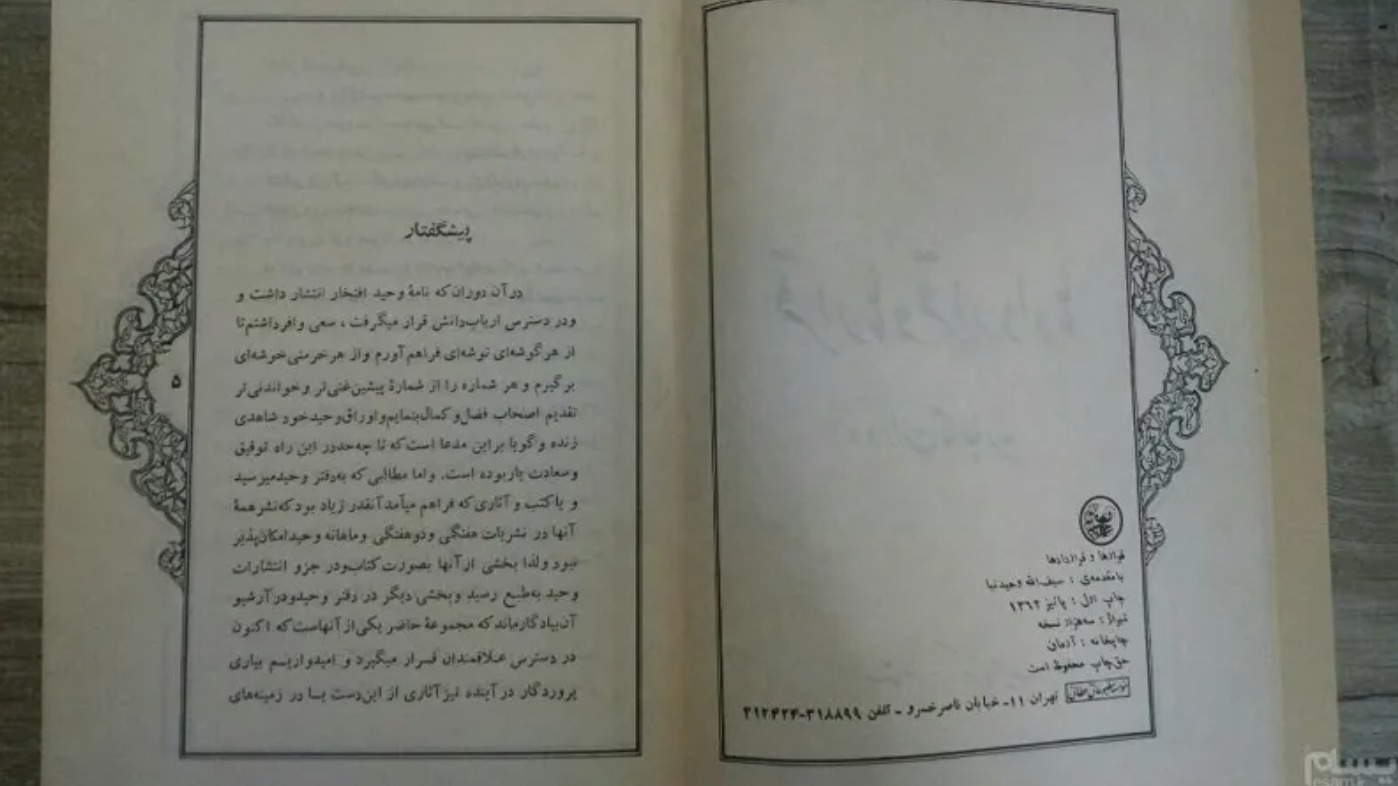 قرارها و قراردادها
بامقدمه‌ی : سیف‌الله وحیدنیا
چاپ اول : پائیز ۱۳۶۲
تیراژ : سه‌هزار نسخه
چاپخانه : آرمان
حق‌چاپ محفوظ است
تهران ۱۱- خیابان ناصرخسرو - تلفن ۳۱۸۸۹۹-۳۱۲۴۲۴
پیشگفتار
در آن دوران که نامهٔ وحید افتخار انتشار داشت و
ودر دسترس ارباب‌دانش قرار میگرفت ، سعی وافرداشتم‌تا
از هرگوشه‌ای توشه‌ای فراهم‌آورم واز هرخرمنی‌خوشه‌ای
برگیرم و هر شماره را از شمارهٔ پیشین‌غنی‌تر وخواندنی‌تر
تقدیم اصحاب فضل‌و کمال‌بنمایم‌واوراق‌وحیدخود شاهدی
زنده وگویا براین مدعا است‌که تا چه‌حددر این راه توفیق
وسعادت یاربوده است. واما مطالبی‌که به‌دفتر وحیدمیرسید
و یاکتب و آثاری‌که فراهم میآمدآنقدر زیاد بودکه‌نشرهمهٔ
آنها در نشریات هفتگی ودوهفتگی وماهانه وحیدامکان‌پذیر
نبود ولذا بخشی ازآنها بصورت‌کتاب‌ودر جزو انتشارات
وحید به‌طبع رسید وبخشی دیگر در دفتر وحیدودرآرشیو
آن‌بیادگارماندکه مجموعهٔ حاضر یکی‌از آنهاست‌که اکنون
در دسترس علاقمندان قرار میگیرد و امیدواریم بیاری
پروردگار درآینده نیزآثاری از این‌دست یا در زمینه‌های
۵
esam.ir